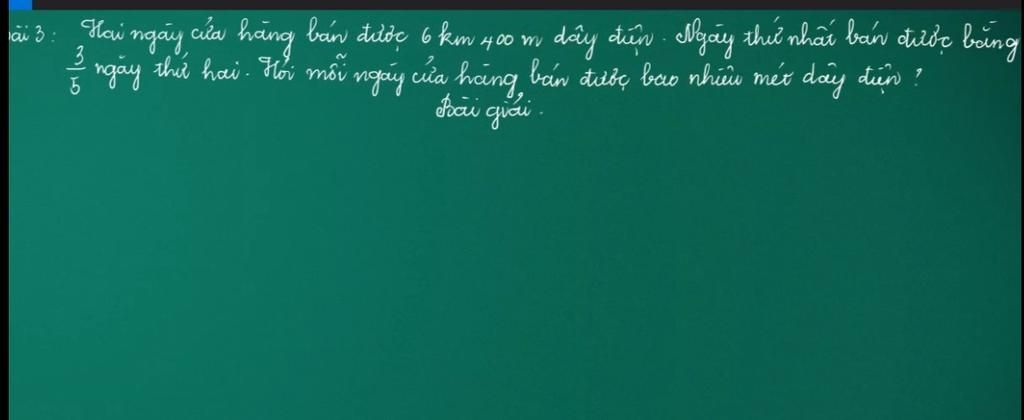 ài 3: Hai ngày cửa hàng bán được 6 km 400 m dây điện. Ngày thứ nhất bán được bằng
3/5 ngày thứ hai. Hỏi mỗi ngày cửa hàng bán được bao nhiêu mét dây điện?
Bài giải.